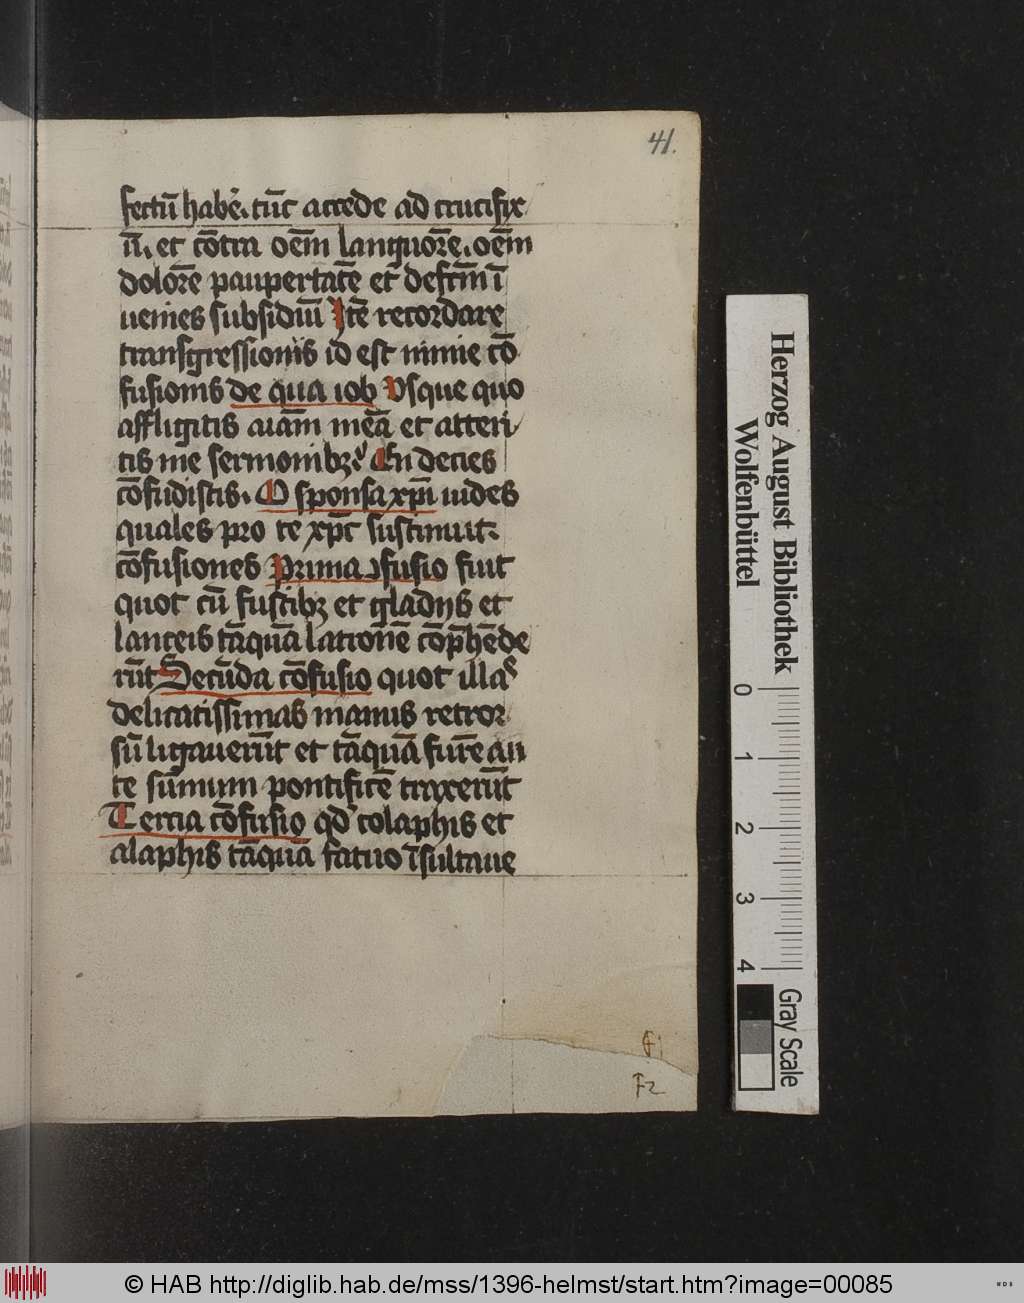 41.
fectū habē. tūc accede ad crucifix
ū. et cōtra oēm languorē. oēm
dolorē paupertatē et defctm ī
uenies subsidiū Itē recordare
transgressionis id est nimie cō
fusionis de qua iob Vsque quo
affligitis aiām meā et atteri
tis me sermonibꝫ En decies
cōfudistis. O sponsa xp̄i uides
quales pro te xp̄c sustinuit.
cōfusiones Prima ꝯfusio fuit
quot cū fustibꝫ et gladijs et
lanceis tāquā latronē cōp̄hēde
rūt Secūda cōfusio quot illas
delicatissimas manus retror
sū ligauerūt et tāquā furē an
te sūmum pontificē traxerūt
Tercia cōfusio qd̓ colaphis et
alaphis tāquā fatuo īsultaue
F2
Herzog August Bibliothek
Wolfenbüttel
0 1 2 3 4
Gray Scale
© HAB http://diglib.hab.de/mss/1396-helmst/start.htm?image=00085
WDB